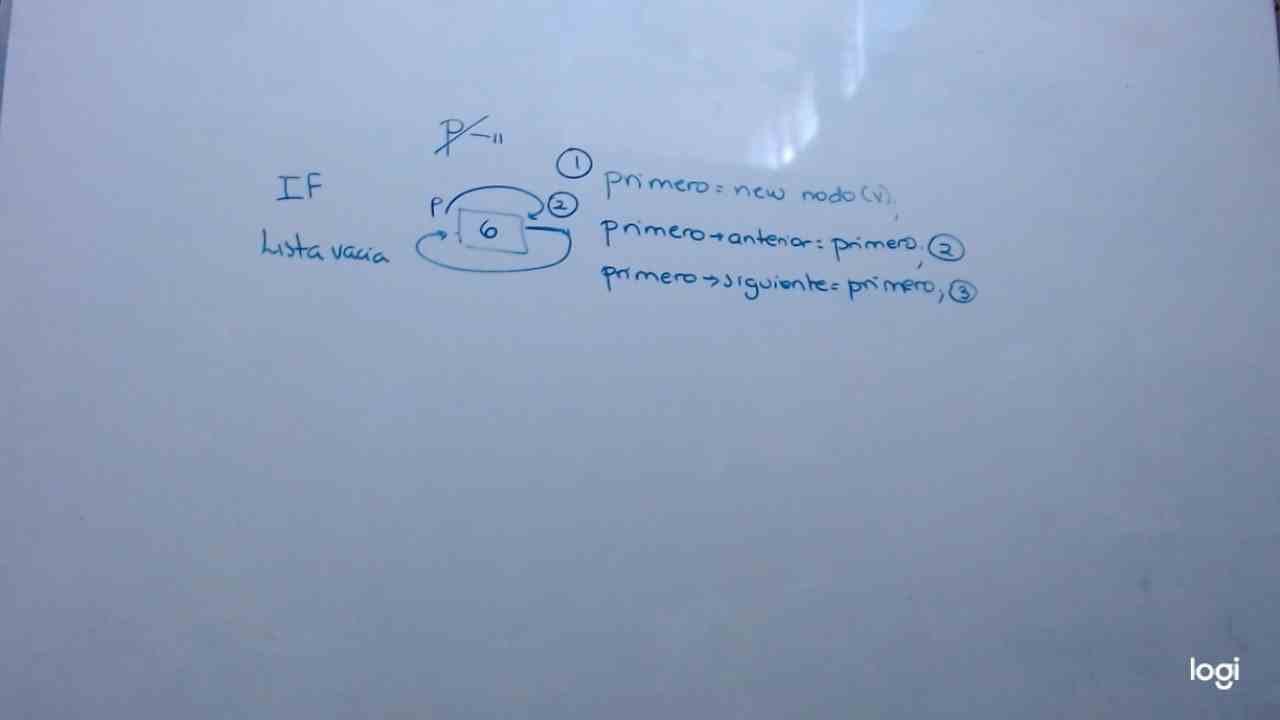 P
IF
Lista vacia
P
6
①
②
primero = new nodo(v);
primero→anterior = primero; ②
primero→siguiente = primero; ③
logi